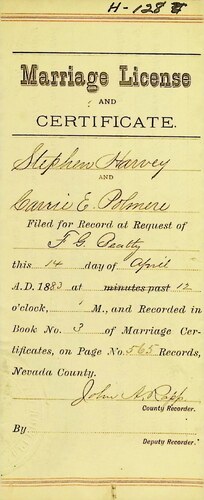 H-128
Marriage License
AND
CERTIFICATE.
Stephen Harvey
AND
Carrie E. Polmere
Filed for Record at Request of
F. G. Beatty
this 14 day of April
A.D. 1883 at minutes past 12
o'clock, M., and Recorded in
Book No. 3 of Marriage Cer-
tificates, on Page No. 565 Records,
Nevada County.
John A. Rapp
County Recorder.
By
Deputy Recorder.